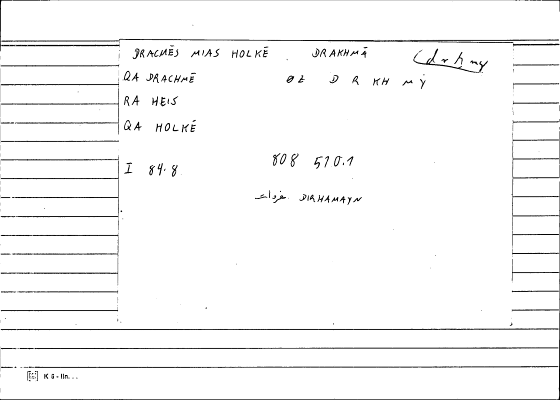 DRACMĒS MIAS HOLKĒ DRAKHMĀ (drhmy
QA DRACHMĒ ØŁ D R KH MȲ
RA HEIS
QA HOLKĒ
I 84.8 808 510.1
مفردات DIRHAMAYN
K 6 - lin...